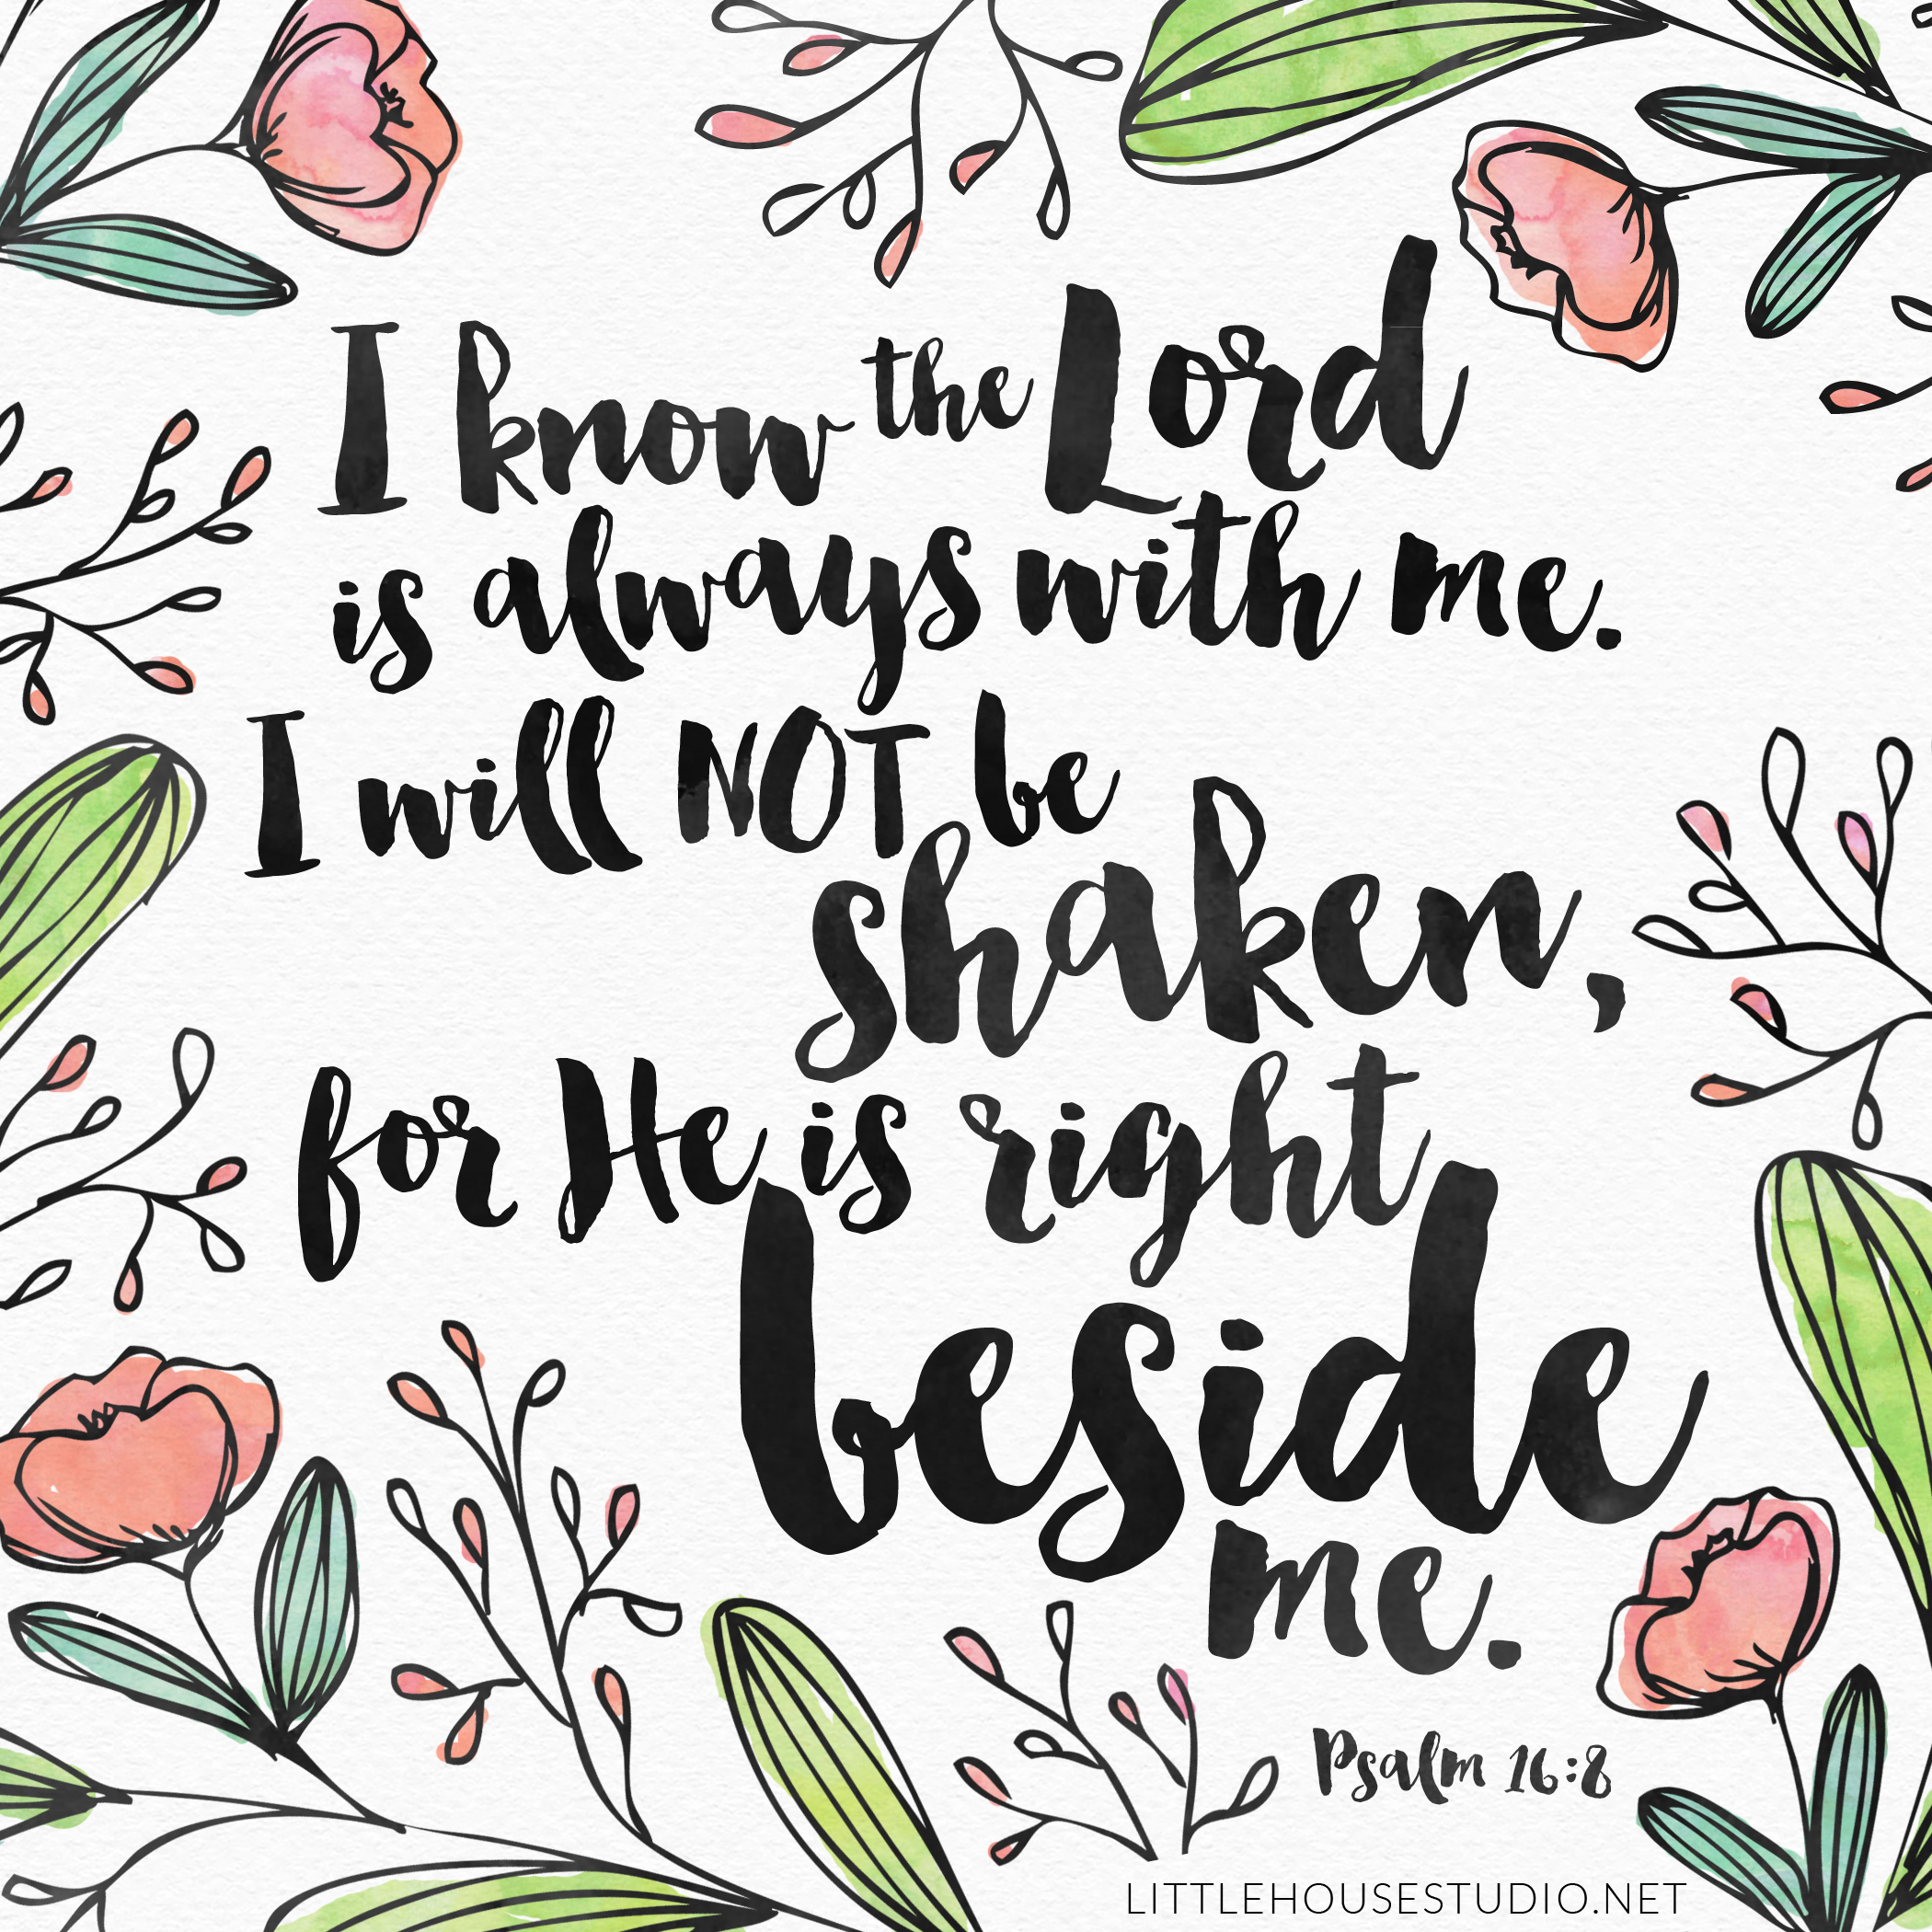 I know the Lord
is always with me.
I will NOT be
shaken,
for He is right
beside
me.
Psalm 16:8
LITTLEHOUSESTUDIO.NET